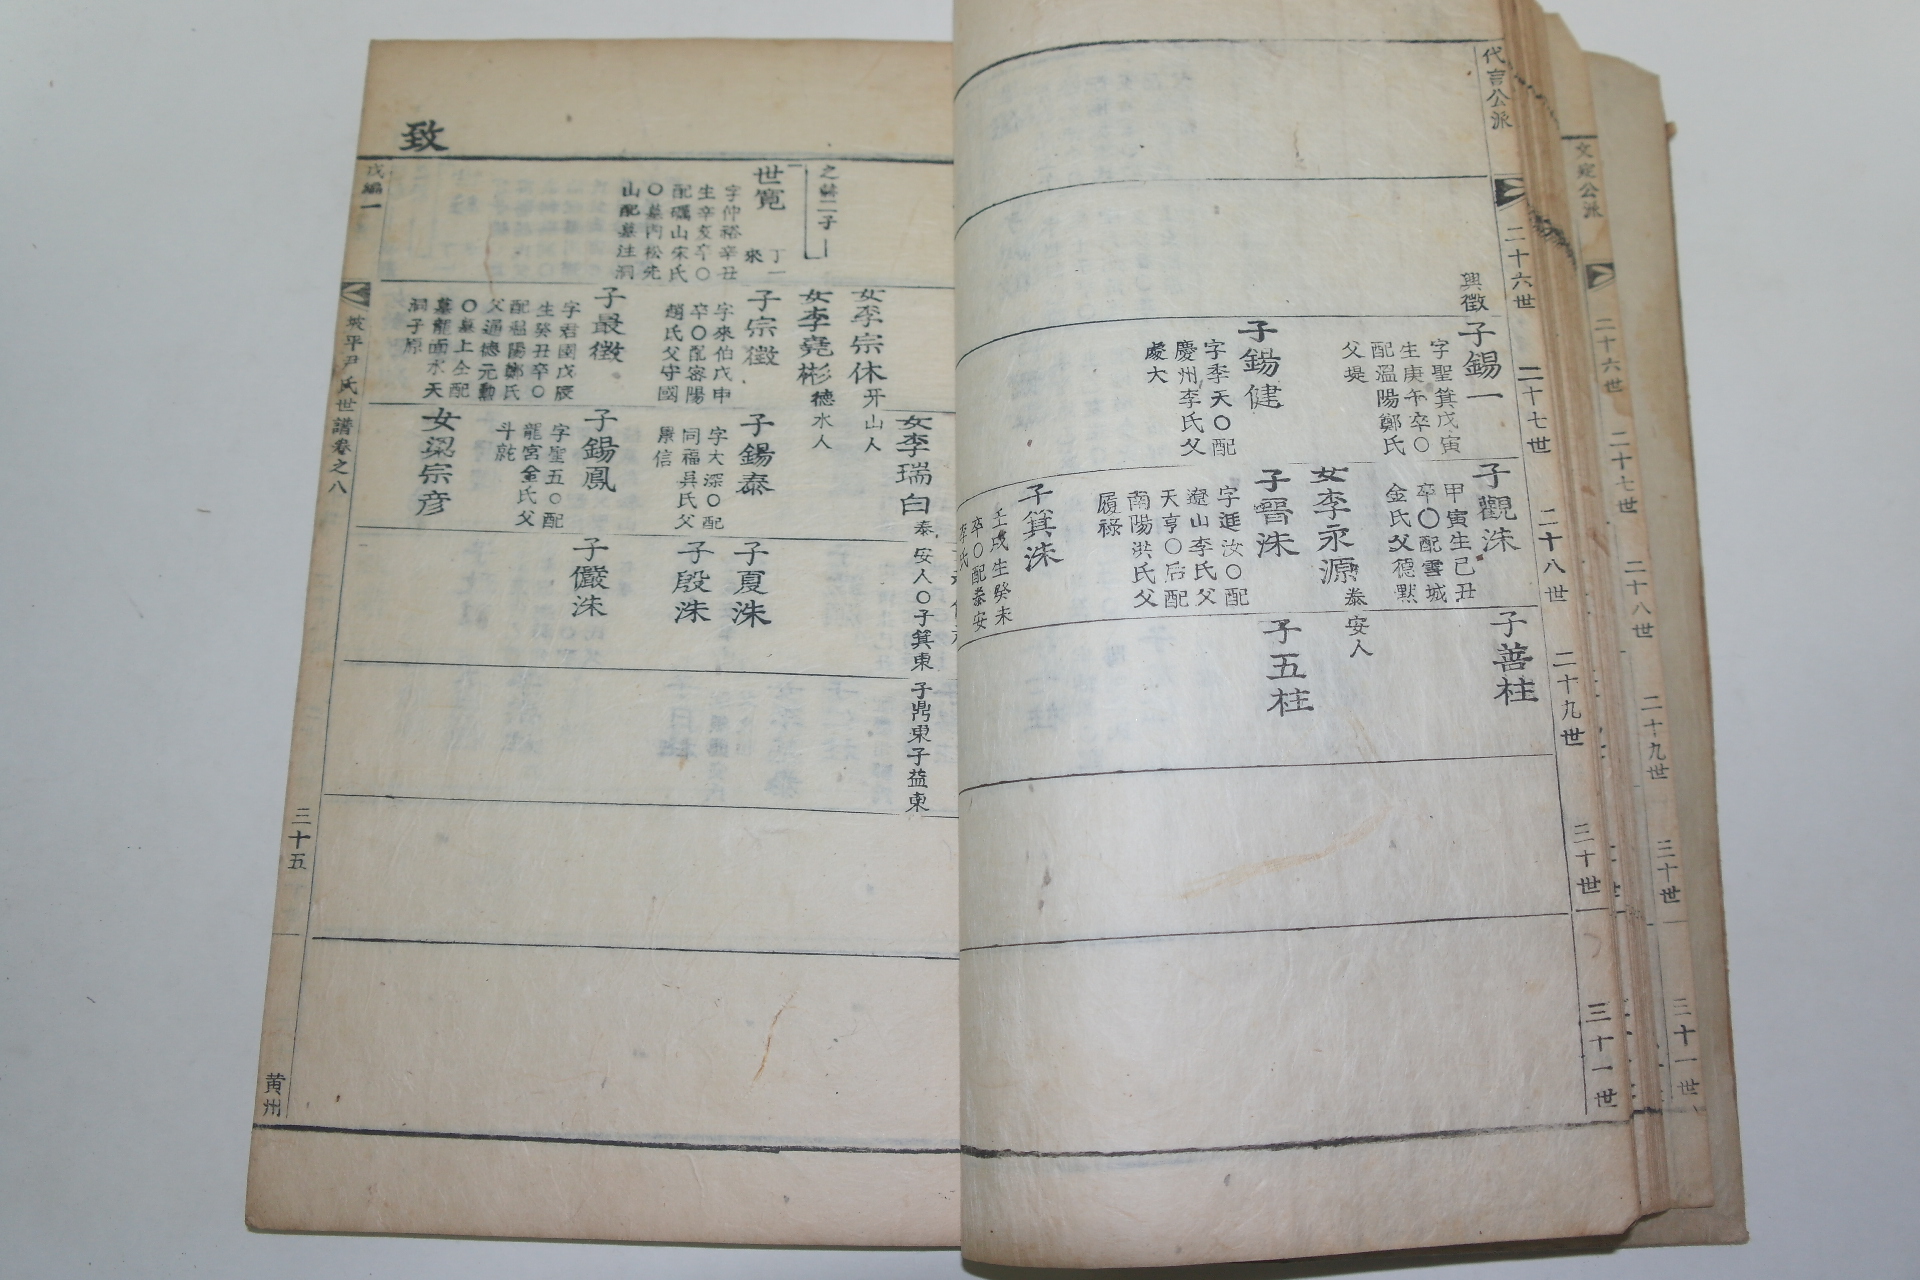 代言公派
二十六世
二十七世
二十八世
二十九世
三十世
三十一世
興徵
子錫一
字聖箕戊寅
生庚午卒〇
配溫陽鄭氏
父堤
子錫健
字季天〇配
慶州李氏父
處大
子觀洙
甲寅生己丑
卒〇配雲城
金氏父德默
女李永源
泰安人
子晋洙
字進汝〇配
遼山李氏父
天亨〇后配
南陽洪氏父
履祿
子箕洙
壬戌生癸未
卒〇配泰安
李氏
子善柱
子五柱
文定公派
二十六世
二十七世
二十八世
二十九世
三十世
三十一世
致
之赫二子
世寬
丁一
來
字仲裕辛丑
生辛亥卒〇
配礪山宋氏
〇墓內松先
山配墓注洞
女李宗休
牙山人
女李堯彬
德水人
子宗徵
字來伯戊申
卒〇配密陽
趙氏父守國
子最徵
字君國戊辰
生癸丑卒〇
配溫陽鄭氏
父通德元勳
〇墓上仝配
墓龍面水天
洞子原
女李瑞白
泰安人〇子箕東子鼎東子益東
子錫泰
字大深〇配
同福吳氏父
景信
子錫鳳
字聖五〇配
龍宮金氏父
斗龍
女梁宗彦
子夏洙
子殷洙
子儼洙
戌編一
坡平尹氏世譜卷之八
三十五
黃州